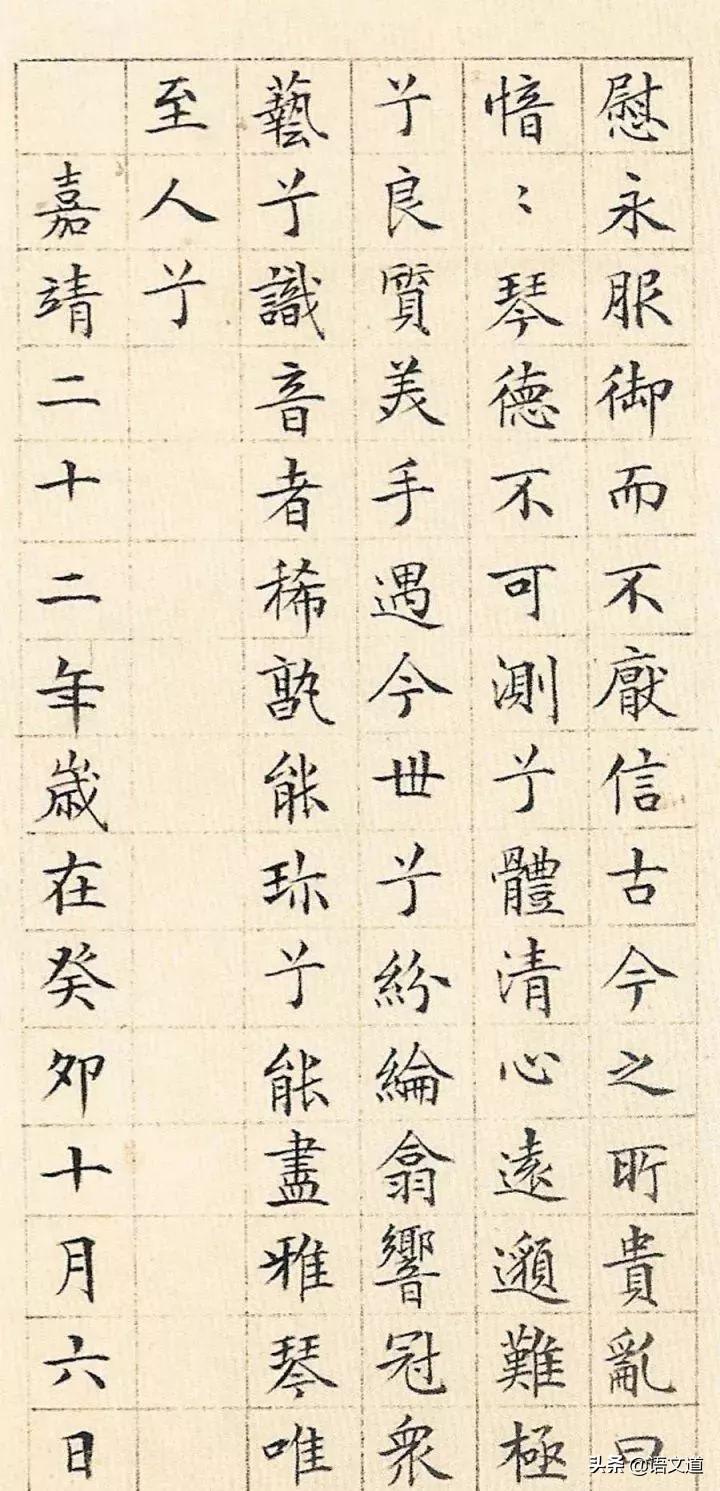 慰永服御而不厭信古今之所貴亂曰
愔〻琴德不可測兮體清心遠邈難極
兮良質美手遇今世兮紛綸翕響冠衆
藝兮識音者稀孰能珎兮能盡雅琴唯
至人兮
嘉靖二十二年歲在癸卯十月六日
头条 @语文道